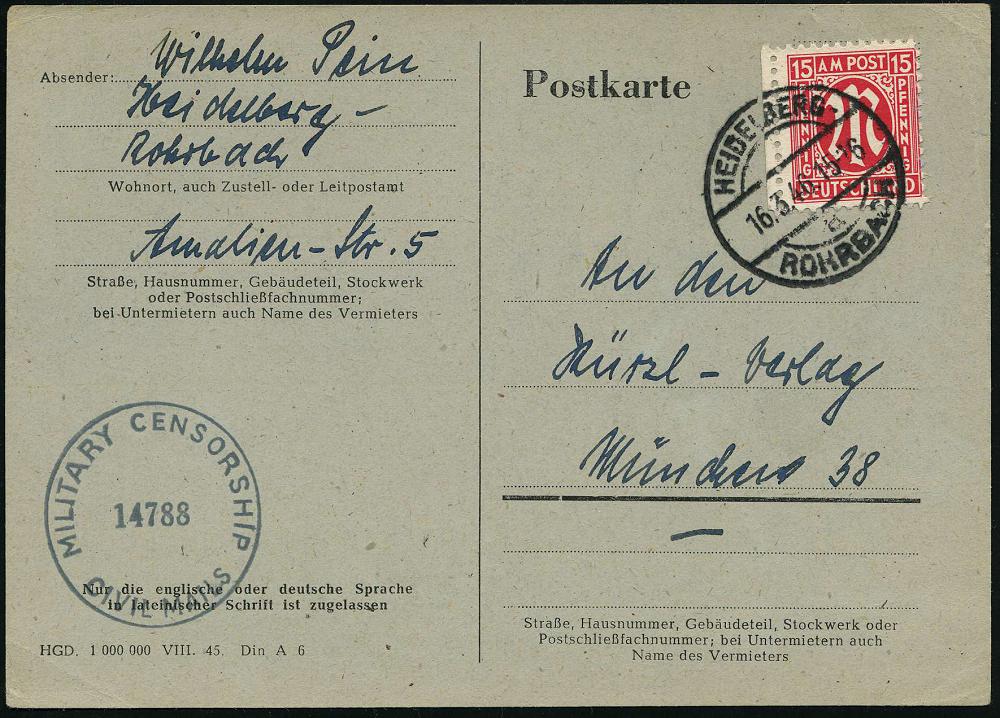 Absender: Wilhelm Pein
Heidelberg-
Rohrbach
Wohnort, auch Zustell- oder Leitpostamt
Amalien-Str. 5
Straße, Hausnummer, Gebäudeteil, Stockwerk
oder Postschließfachnummer;
bei Untermietern auch Name des Vermieters
MILITARY CENSORSHIP
14788
CIVIL MAILS
Nur die englische oder deutsche Sprache
in lateinischer Schrift ist zugelassen
HGD. 1 000 000 VIII. 45. Din A 6
Postkarte
15 AM POST 15
PFENNIG
PFENNIG
M
DEUTSCHLAND
HEIDELBERG-
16.3.46.15-16
ROHRBACH
An den
Hürzl - Verlag
München 38
Straße, Hausnummer, Gebäudeteil, Stockwerk oder
Postschließfachnummer; bei Untermietern auch
Name des Vermieters